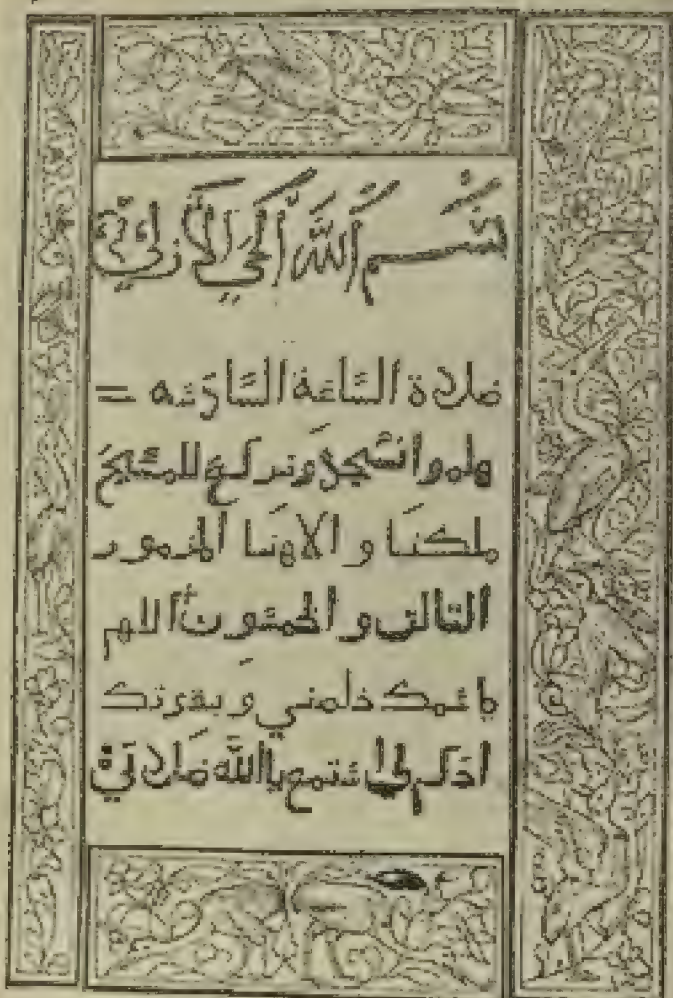 بسم الله الحي الازلي
صلاة الساعة السادسه =
هلموا نسجد ونركع للمسيح
ملكنا والاهنا المزمور
الثالث والخمسون اللهم
باسمك خلصني وبقوتك
احكم لي استمع يا الله صلاتي